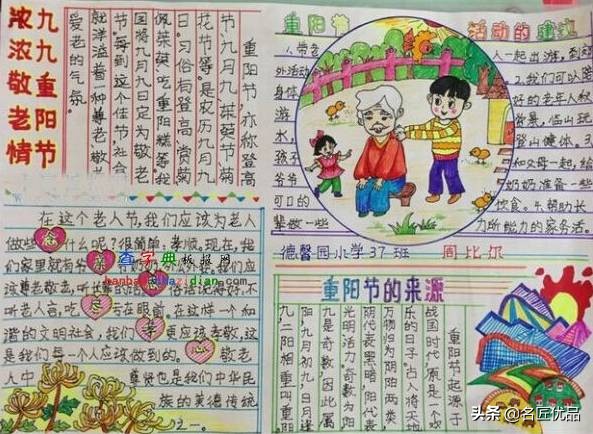 九九重阳节
浓浓敬老情
重阳节,亦称登高
节、九月九、茱萸节、菊
花节等。是农历九月九
日。习俗有登高、赏菊
佩茱萸吃重阳糕等我
国将九月九日定为敬老
节。每到这个佳节,社会
就洋溢着一种尊老,敬老
爱老的气氛。
重阳节 活动的建议
人一起出游,到郊
外活动 2.我们可以陪
身体 好的老年人秋
游 赏景,临山玩
水, 登山健体。3
孩 和父母一起,给
爷爷 奶奶准备一些
可口的 饮食。4.帮助长
辈做一些 力所能力的家务活。
在这个老人节,我们应该为老人
做些什么呢?很简单,孝顺。现在,我
们家里就有
该尊敬老人
不听老人言,吃亏在眼前。在这样一个和
谐的文明社会,我们更应该孝敬,这
是我们每一个人应该做到的。 敬老
人中 尊贤也是我们中华民
族的美德传统
之一。
查字典板报网
德馨园小学37班 周比尔
重阳节的来源
重阳节起源于
战国时代,原是一个欢
乐的日子。古人将天地
万物归为阴阳两类,
阴代表黑暗,阳代表
光明活力。奇数为阳
九是奇数因此属
阳,九月初九,日月逢
九二阳相重叫重阳
头条 @名匠优品